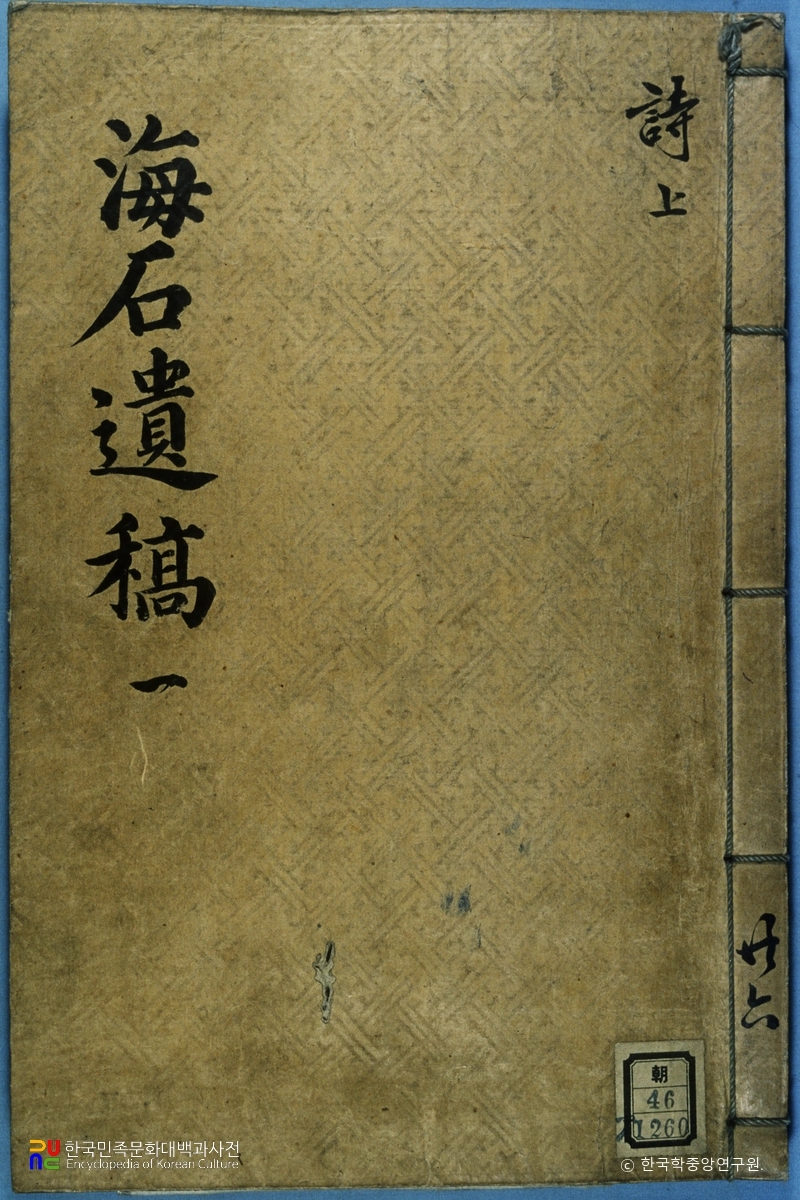 詩上
海石遺稿一
共六
朝
46
1260
한국민족문화대백과사전
Encyclopedia of Korean Culture
© 한국학중앙연구원.